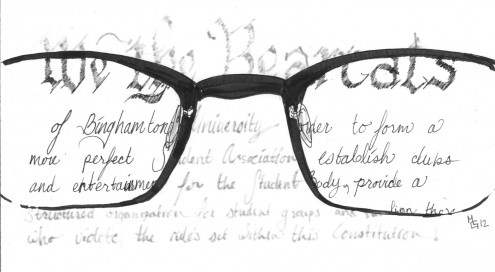 We the Bearcats
of Binghamton University order to form a
more perfect Student Association establish clubs
and entertainment for the Student Body, provide a
structured organization for student groups and those
who violate the rules set within this Constitution!